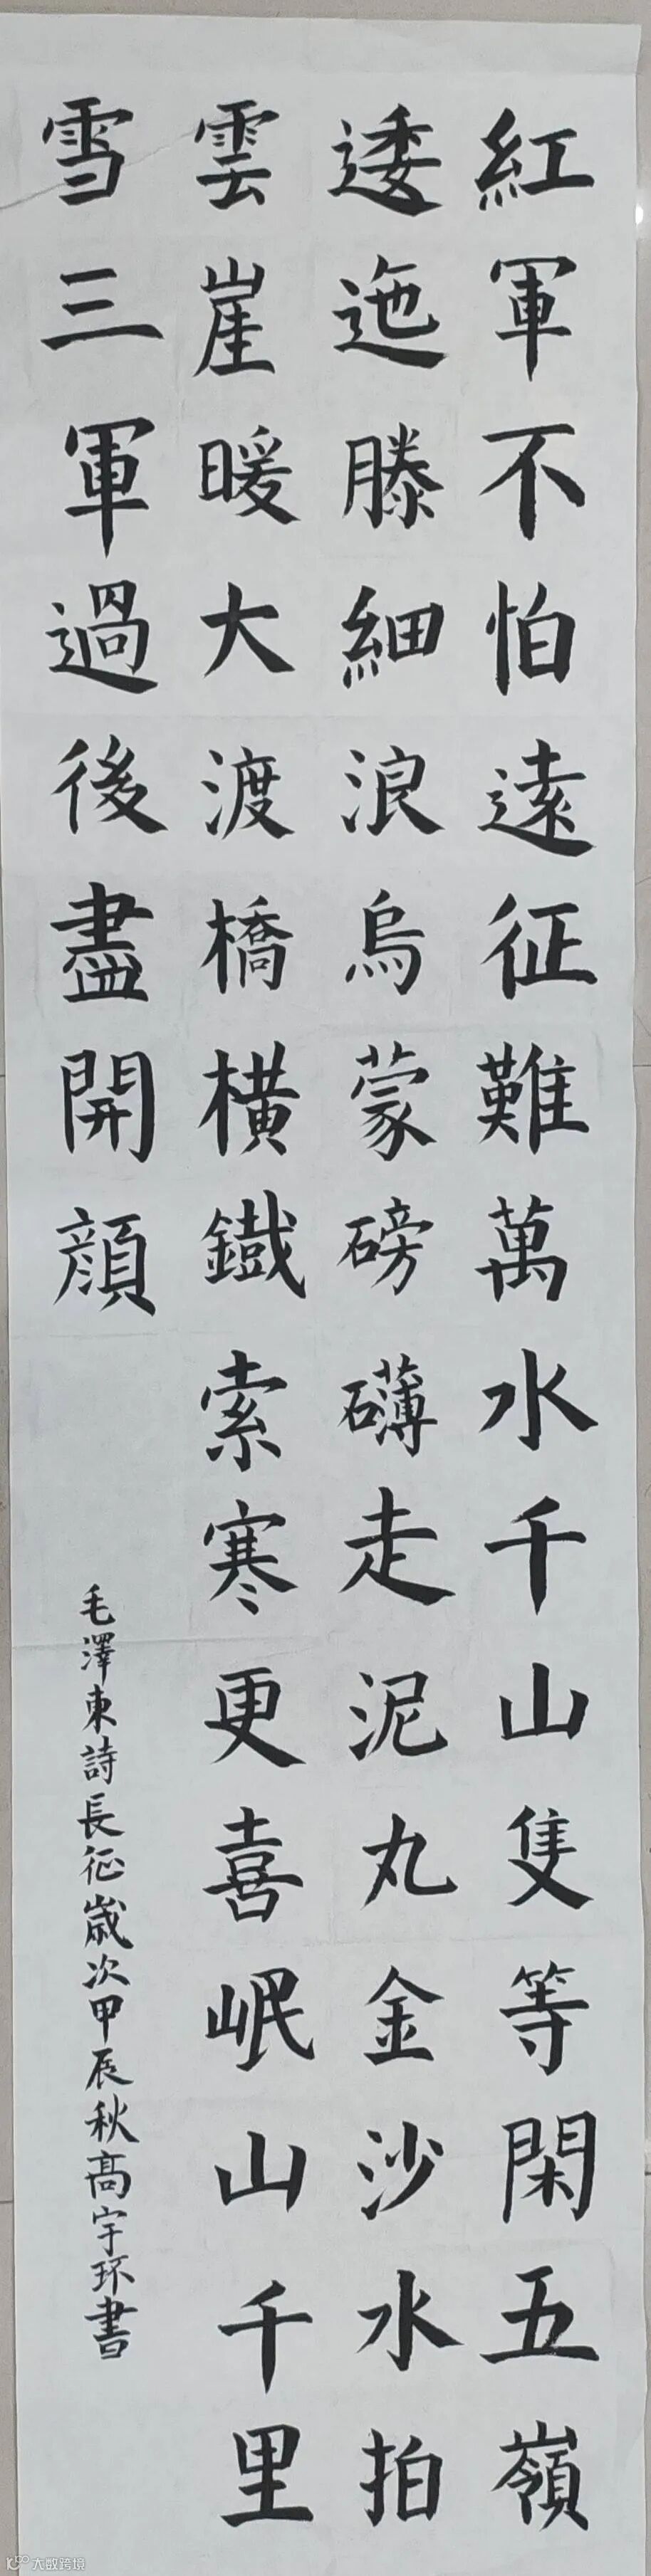 紅軍不怕遠征難萬水千山隻等閑五嶺
逶迤滕細浪烏蒙磅礴走泥丸金沙水拍
雲崖暖大渡橋橫鐵索寒更喜岷山千里
雪三軍過後盡開顏
毛澤東詩長征歲次甲辰秋高宇环書
大数跨境